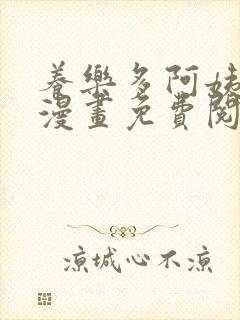 養樂多阿姨
漫畫免費閱
涼城心不涼